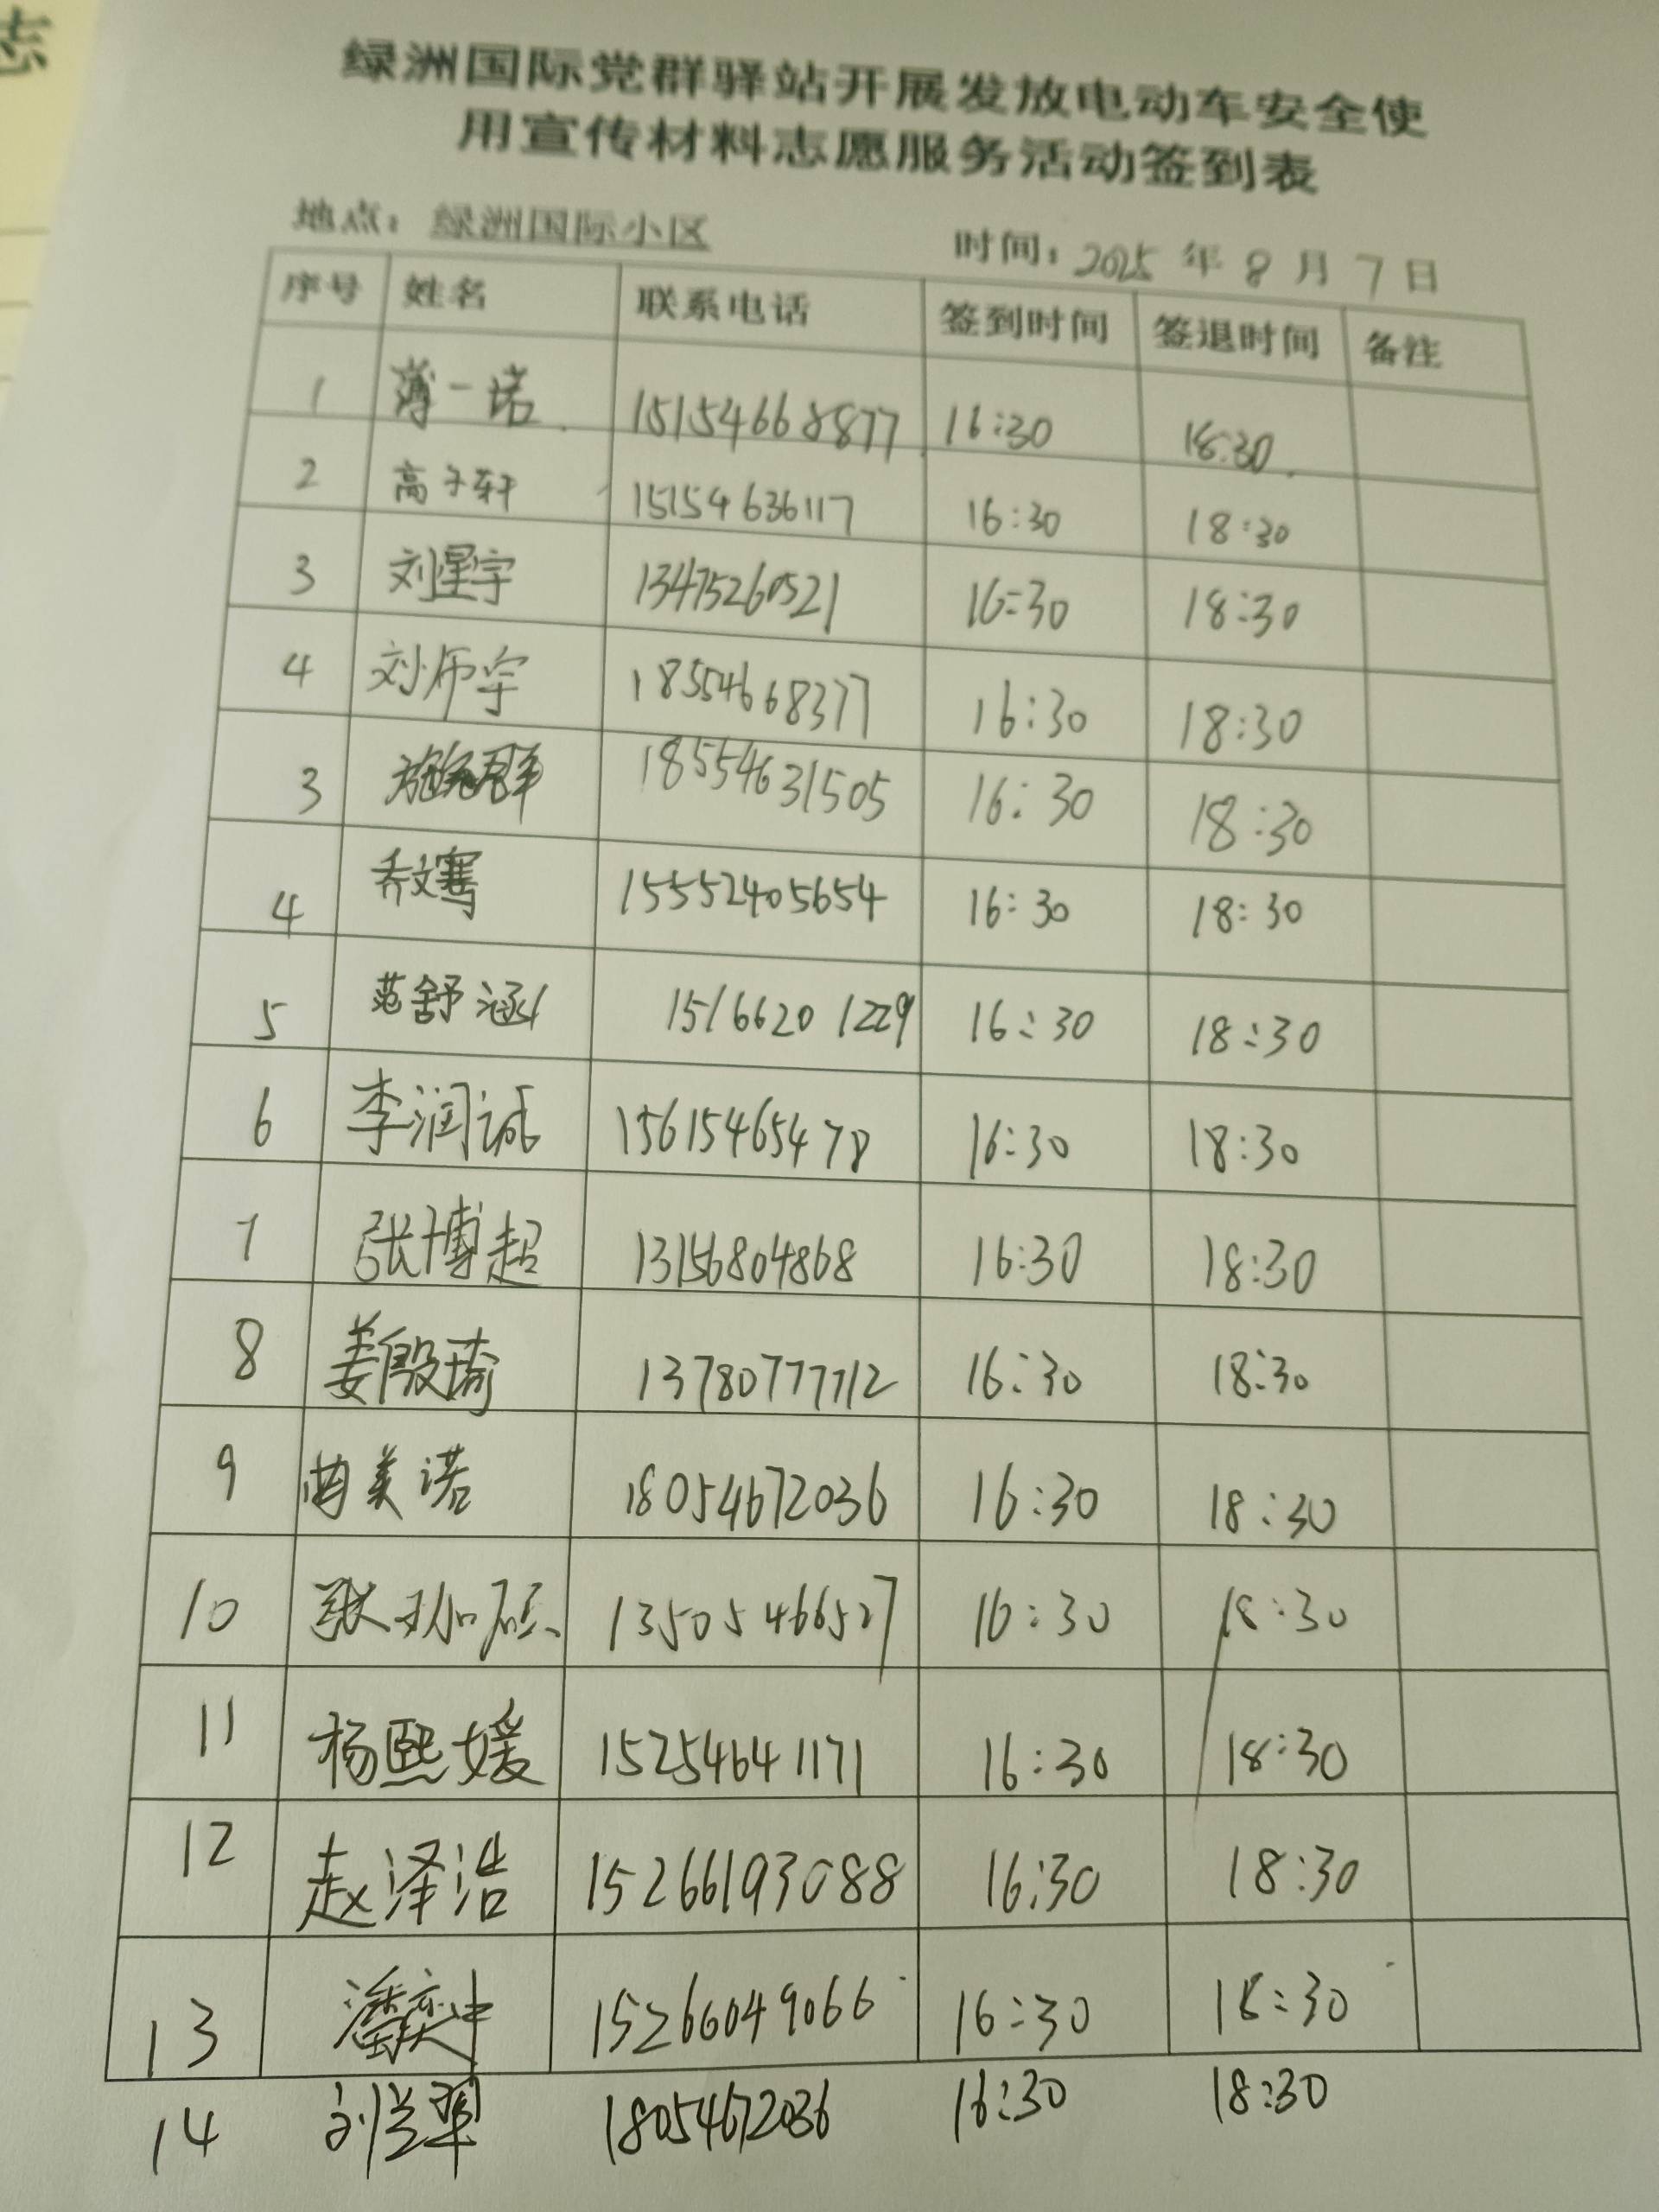 志
绿洲国际党群驿站开展发放电动车安全使
用宣传材料志愿服务活动签到表
地点：绿洲国际小区 时间：2025年8月7日
序号 姓名 联系电话 签到时间 签退时间 备注
1 薄一诺 15154668877 16:30 18:30
2 高子轩 15154636117 16:30 18:30
3 刘星宇 13475260521 16:30 18:30
4 刘师宇 18554668377 16:30 18:30
3 18554631505 16:30 18:30
4 乔文骞 15552405654 16:30 18:30
5 范舒涵 15166201229 16:30 18:30
6 李润诚 15615465478 16:30 18:30
7 张博超 13156804868 16:30 18:30
8 姜殷琦 13780777712 16:30 18:30
9 曲美诺 18054672036 16:30 18:30
10 张珈硕 13505466527 16:30 18:30
11 杨熙媛 15254641171 16:30 18:30
12 赵泽浩 15266193088 16:30 18:30
13 潘奕冰 15266049066 16:30 18:30
14 18054672036 16:30 18:30